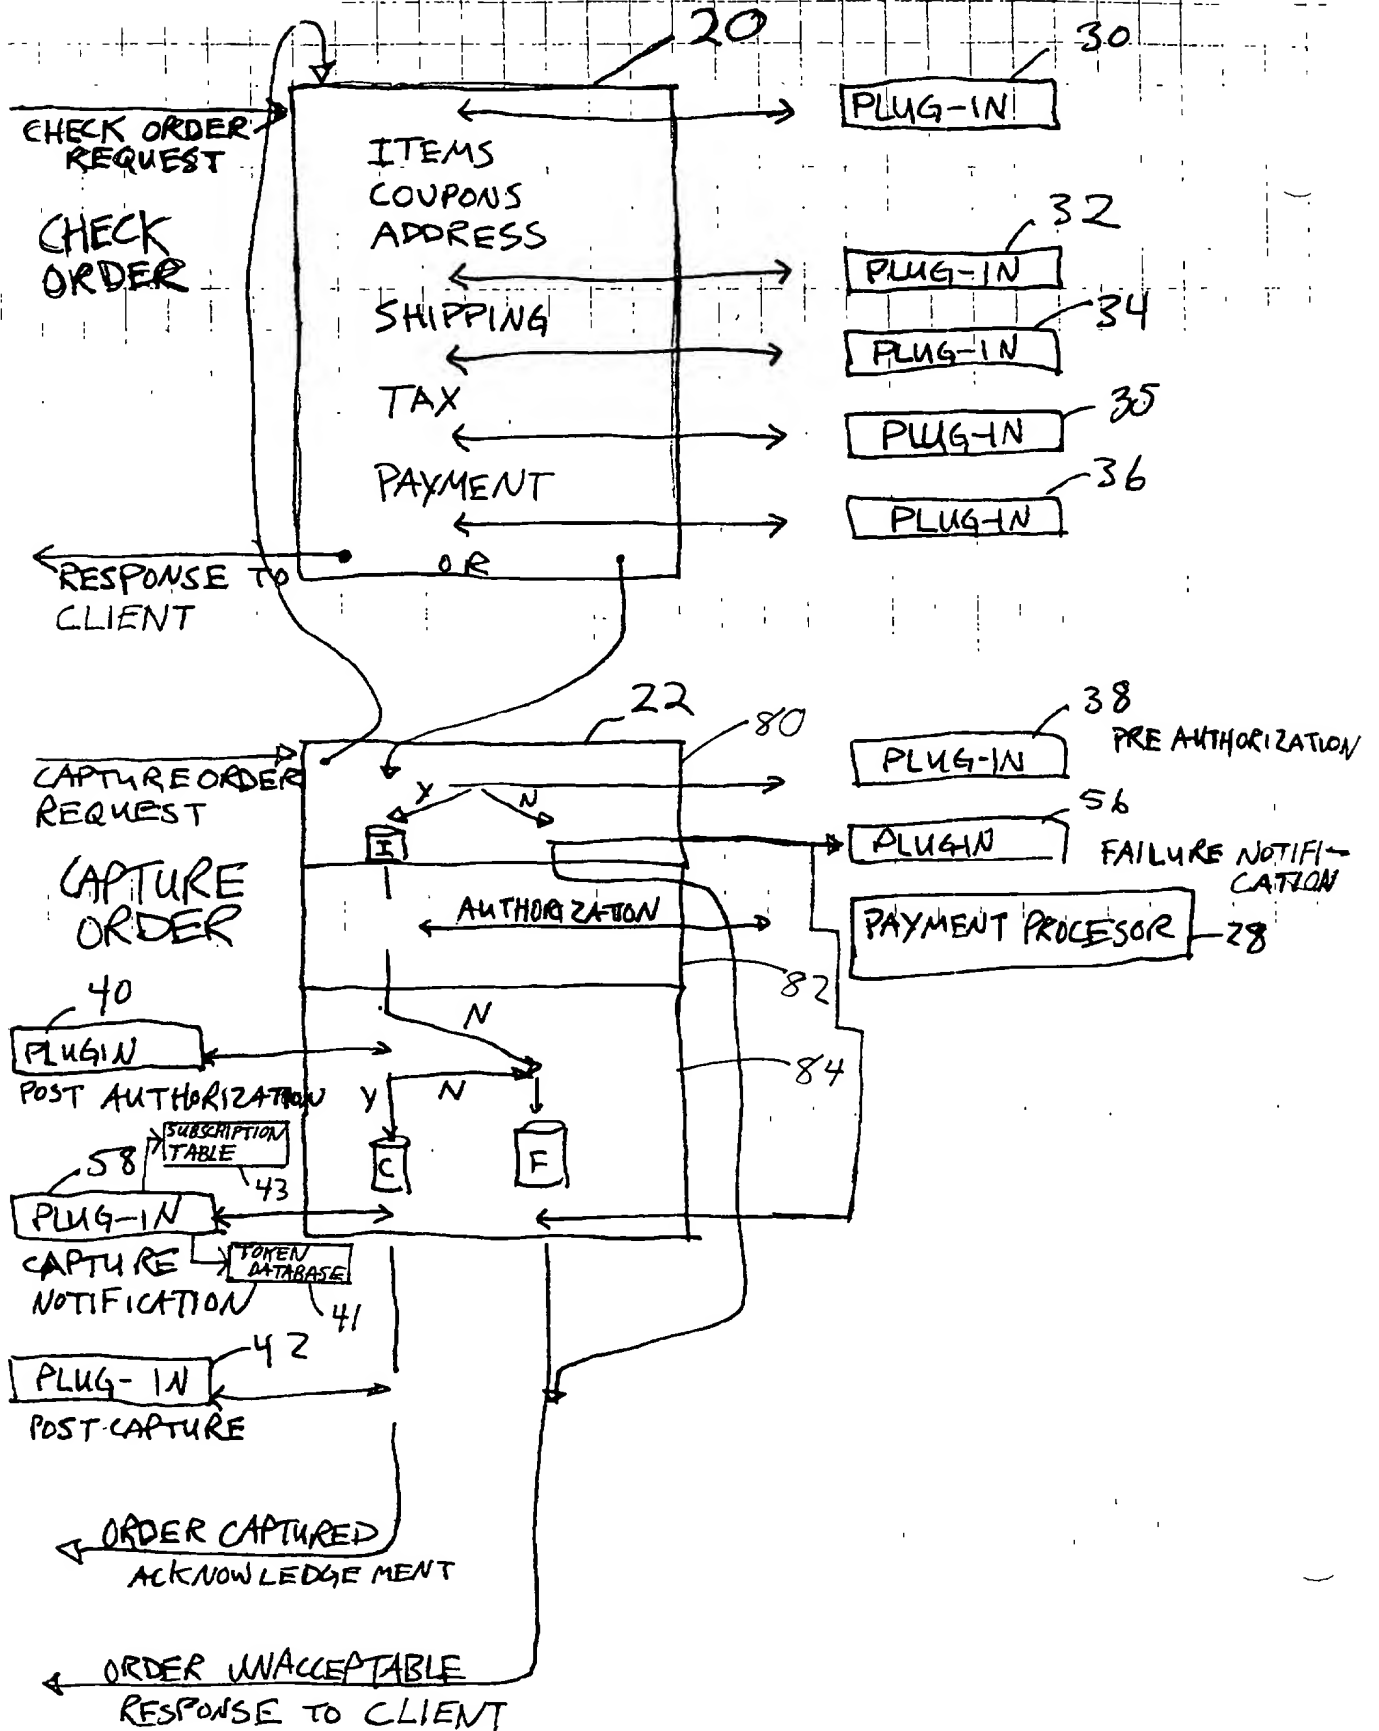 20
30
PLUG-IN
CHECK ORDER
REQUEST
ITEMS
COUPONS
ADDRESS
CHECK
ORDER
32
PLUG-IN
SHIPPING
34
PLUG-IN
TAX
35
PLUG-IN
PAYMENT
36
PLUG-IN
OR
RESPONSE TO
CLIENT
22
80
38
PLUG-IN
PRE AUTHORIZATION
CAPTURE ORDER
REQUEST
Y
N
I
56
PLUGIN
FAILURE NOTIFI-
CATION
CAPTURE
ORDER
AUTHORIZATION
PAYMENT PROCESOR
28
82
40
PLUGIN
POST AUTHORIZATION
N
Y
N
84
SUBSCRIPTION
TABLE
43
58
PLUG-IN
C
F
CAPTURE
NOTIFICATION
TOKEN
DATABASE
41
42
PLUG-IN
POST-CAPTURE
ORDER CAPTURED
ACKNOWLEDGEMENT
ORDER UNACCEPTABLE
RESPONSE TO CLIENT